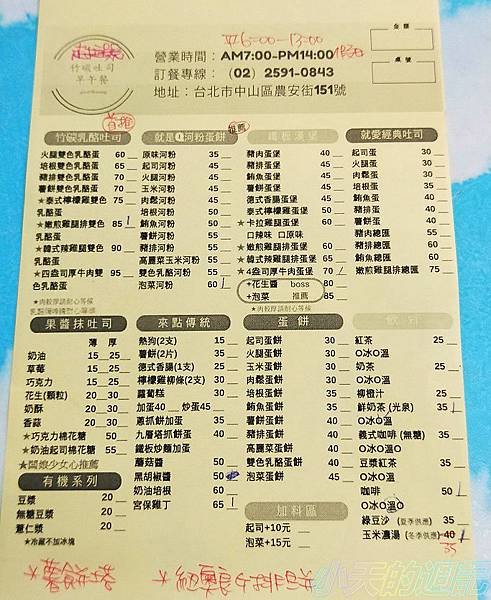 竹碳吐司
早午餐
營業時間：AM7:00-PM14:00
訂餐專線：（02）2591-0843
地址：台北市中山區農安街151號
金額
桌號
首推
推薦
竹碳乳酪吐司
火腿雙色乳酪蛋 60
培根雙色乳酪蛋 65
豬排雙色乳酪蛋 70
薯餅雙色乳酪蛋 70
★泰式檸檬雞雙色乳酪蛋 75
★嫩煎雞腿排雙色乳酪蛋 85
★韓式辣雞腿雙色乳酪蛋 90
★四盎司厚牛肉雙色乳酪蛋 95
★肉較厚請耐心等候
就是Q河粉蛋餅
原味河粉 35
起司河粉 45
火腿河粉 45
玉米河粉 45
肉鬆河粉 45
培根河粉 50
鮪魚河粉 50
薯餅河粉 55
豬排河粉 55
高麗菜玉米河粉 55
雙色乳酪河粉 55
泡菜河粉 60
鐵板漢堡
豬肉蛋堡 40
培根蛋堡 40
鮪魚蛋堡 45
薯餅蛋堡 45
德式香腸蛋堡 45
泰式檸檬雞蛋堡 50
★卡拉雞腿蛋堡 60
口辣味 口原味
★嫩煎雞腿排蛋堡 60
★韓式辣雞腿排蛋堡 65
★4盎司厚牛肉蛋堡 70
+花生醬 boss 80
+泡菜 推薦 85
★肉較厚請耐心等候
就愛經典吐司
起司蛋 30
火腿蛋 30
肉鬆蛋 30
培根蛋 35
鮪魚蛋 40
薯餅蛋 40
豬排蛋 40
豬肉總匯 55
豬排總匯 55
鮪魚總匯 60
嫩煎雞腿排總匯 75
果醬抹吐司
薄 厚
奶油 15 25
草莓 15 25
巧克力 15 25
花生(顆粒) 20 30
奶酥 20 30
香蒜 20 30
★巧克力棉花糖 50
★奶油起司棉花糖 50
★闆娘少女心推薦
有機系列
豆漿 20
無糖豆漿 20
薏仁漿 20
★冷藏不加冰塊
來點傳統
熱狗(2支) 15
薯餅(2片) 35
德式香腸(1支) 25
檸檬雞柳條(2支) 30
蘿蔔糕 30
加蛋40 炒蛋45
蔥抓餅加蛋 40
九層塔抓餅蛋 40
鐵板炒麵加蛋
蘑菇醬 50
黑胡椒醬 50
奶油培根 60
宮保雞丁 65
蛋餅
起司蛋餅 30
火腿蛋餅 30
玉米蛋餅 30
肉鬆蛋餅 30
培根蛋餅 35
鮪魚蛋餅 40
薯餅蛋餅 40
豬排蛋餅 40
高麗菜蛋餅 40
雙色乳酪蛋餅 40
泡菜蛋餅 45
加料區
起司+10元
泡菜+15元
飲料
紅茶 25
O冰O溫
奶茶 25
O冰O溫
柳橙汁 25
鮮奶茶(光泉) 35
O冰O溫
義式咖啡(無糖) 35
O冰O溫
豆漿紅茶 35
O冰O溫
咖啡 50
O冰O溫
綠豆沙(夏季供應) 35
玉米濃湯(冬季供應) 40
35
小天的週記